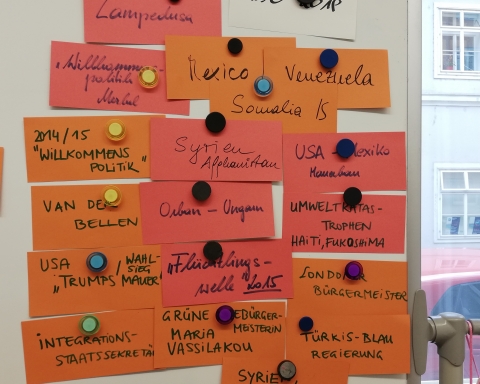 Lampedusa
2018
"Willkommens
politik"
Merkel
Mexico
Venezuela
Somalia IS
2014/15
"WILLKOMMENS
POLITIK"
Syrien
Afghanistan
USA – Mexiko
VAN DER
BELLEN
Orban – Ungarn
UMWELTKATAS-
TROPHEN
HAITI, FUKUSHIMA
USA / WAHL-
SIEG
"TRUMPS MAUER"
"Flüchtlings-
welle" 2015
LONDON
BÜRGERMEISTER
INTEGRATIONS-
STAATSSEKRETÄR
GRÜNE BEBÜRGER-
MEISTERIN
MARIA
VASSILAKOU
TÜRKIS-BLAU
REGIERUNG
SYRIEN,